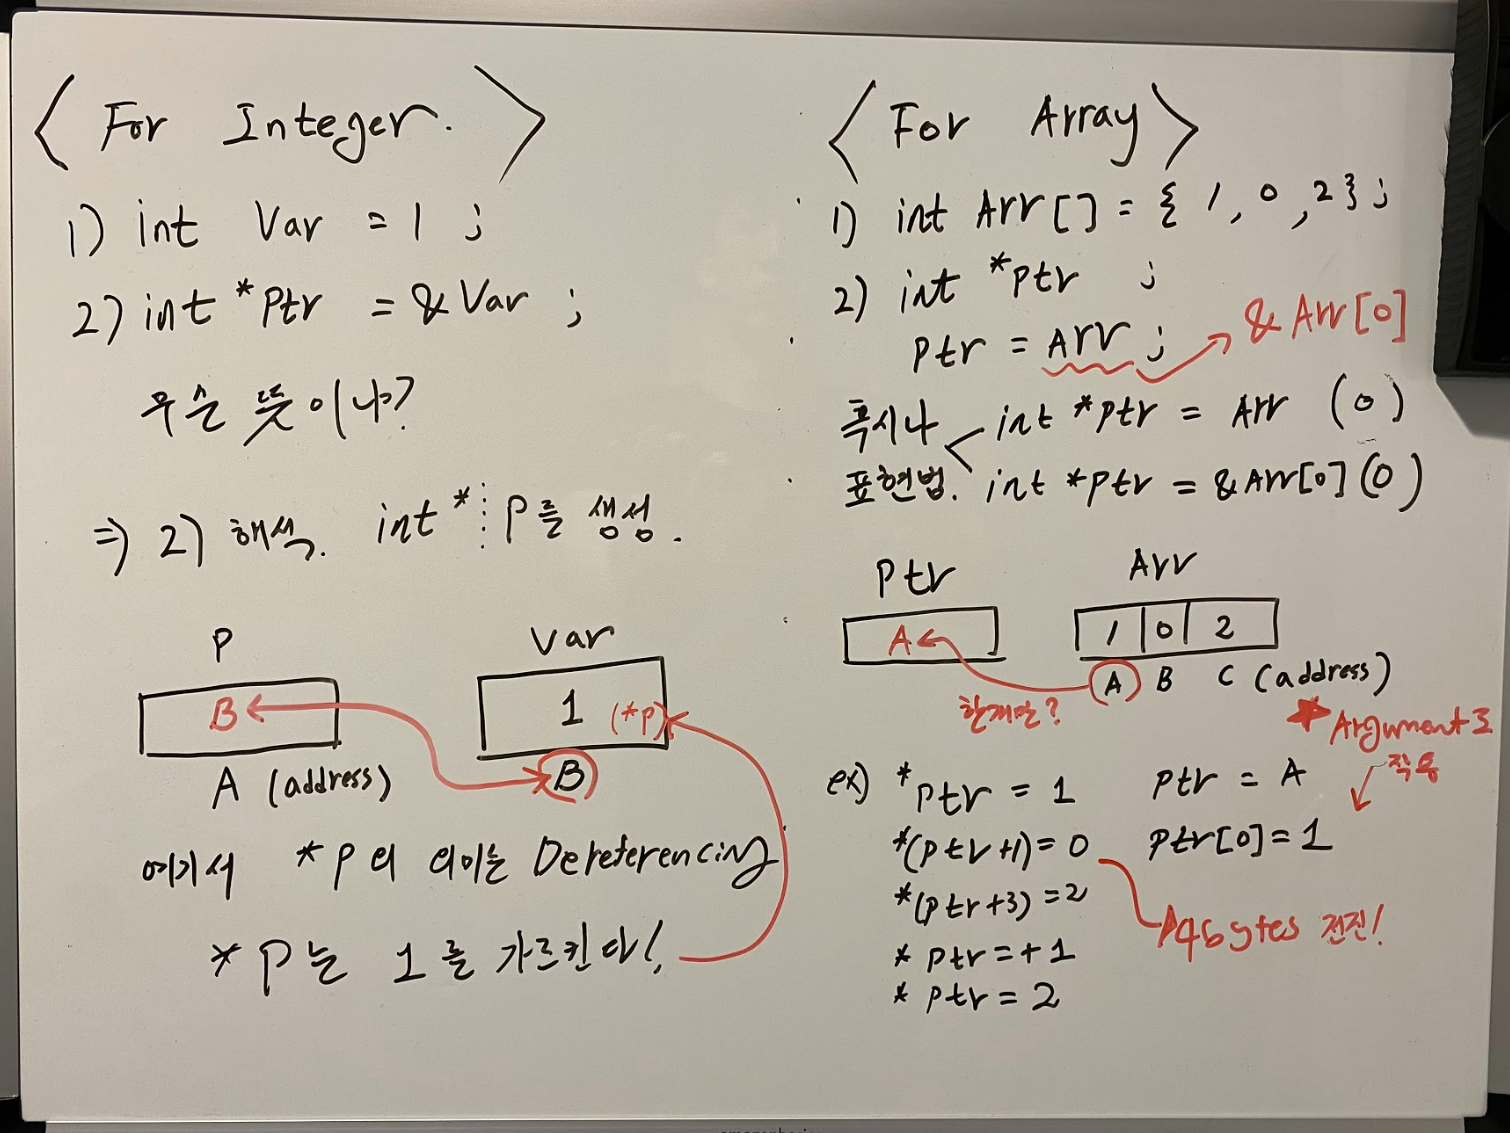 < For Integer. >
1) int Var = 1 ;
2) int *Ptr = & Var ;
무슨 뜻이냐?
⇒ 2) 해석. int * P를 생성.
P
Var
B
1 (*p)
A (address)
B
여기서 *P의 의미는 Dereferencing
*P는 1를 가르킨다!
< For Array >
1) int Arr[] = { 1, 0, 2};
2) int *ptr ;
ptr = Arr ; → & Arr[0]
혹시나 int *ptr = Arr (O)
표현법. int *ptr = &Arr[0] (O)
Ptr
Arr
A
1 0 2
A B C (address)
★ Argument로
작용
ex) *ptr = 1 ptr = A
*(ptr+1) = 0 ptr[0] = 1
*(ptr+3) = 2
4bytes 전진!
* ptr = + 1
* ptr = 2